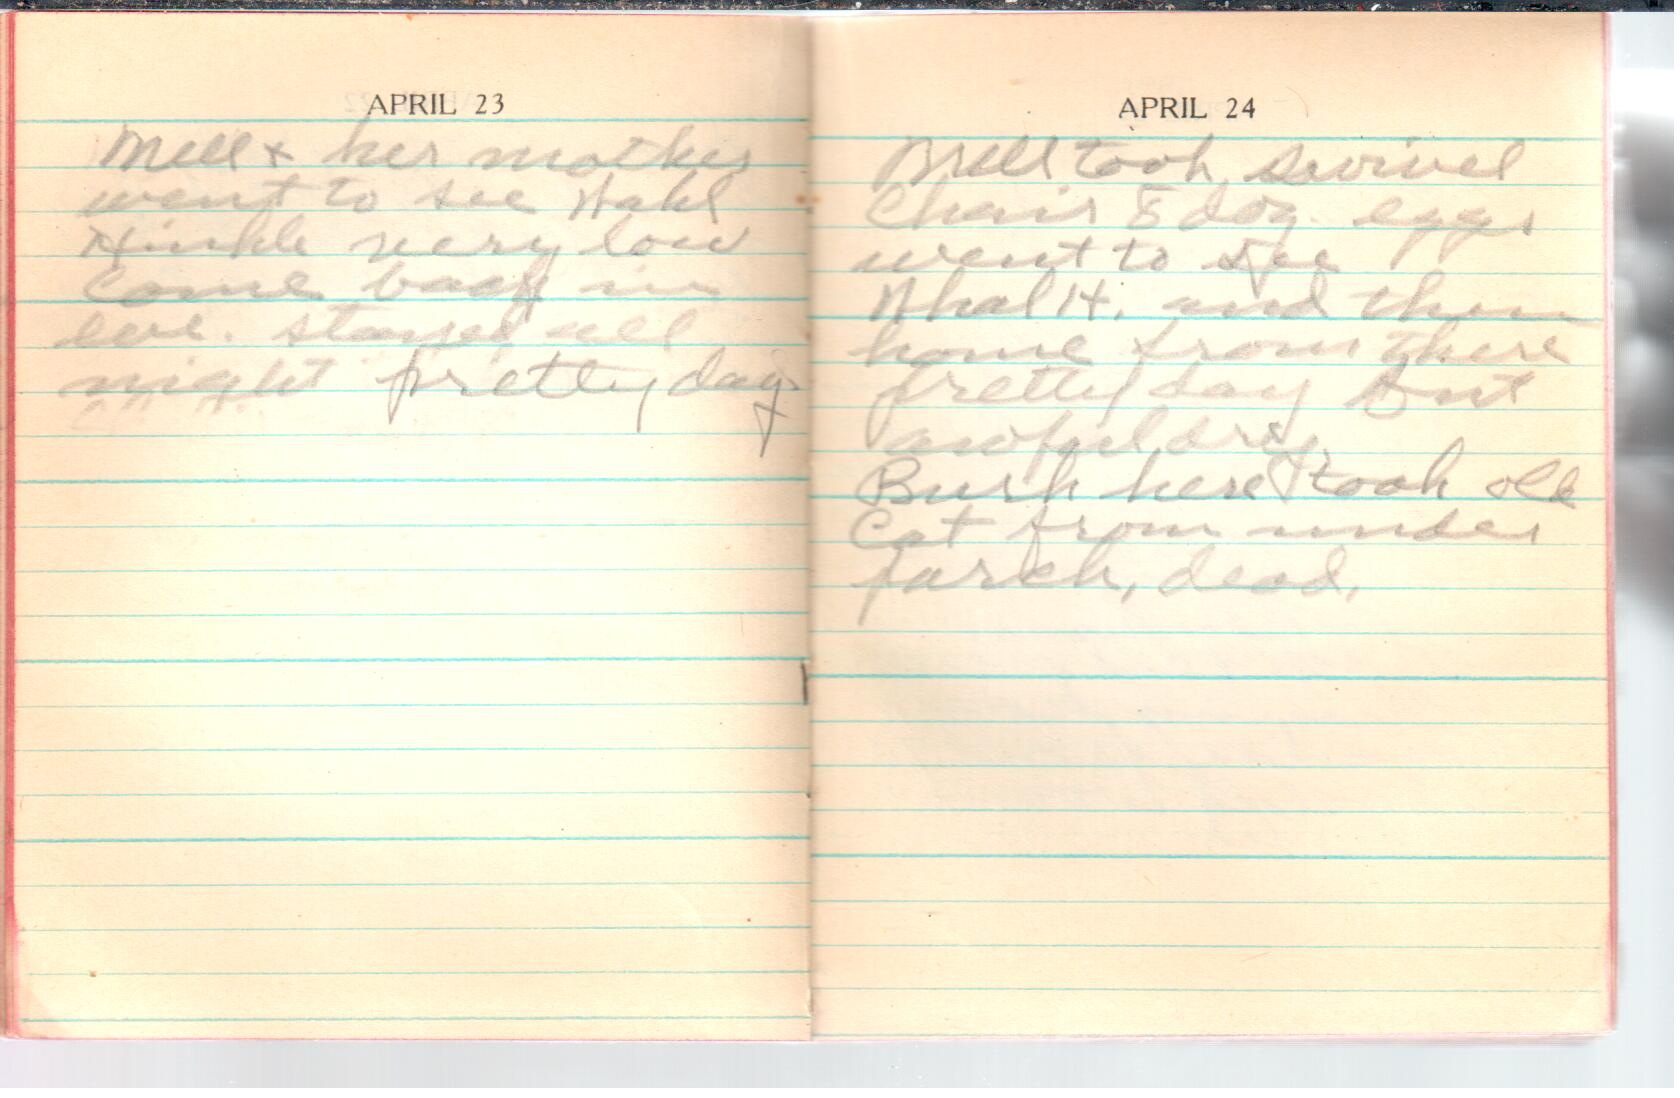 APRIL 23
Mell + her mother
went to see Hahl
Hinkle very low
Come back in
eve. stayed all
night pretty day
APRIL 24
Mell took swivel
Chair 8 doz eggs
went to see
Whal H. and then
home from there
pretty day but
awful dry.
Burk here took old
Cat from under
porch, dead.